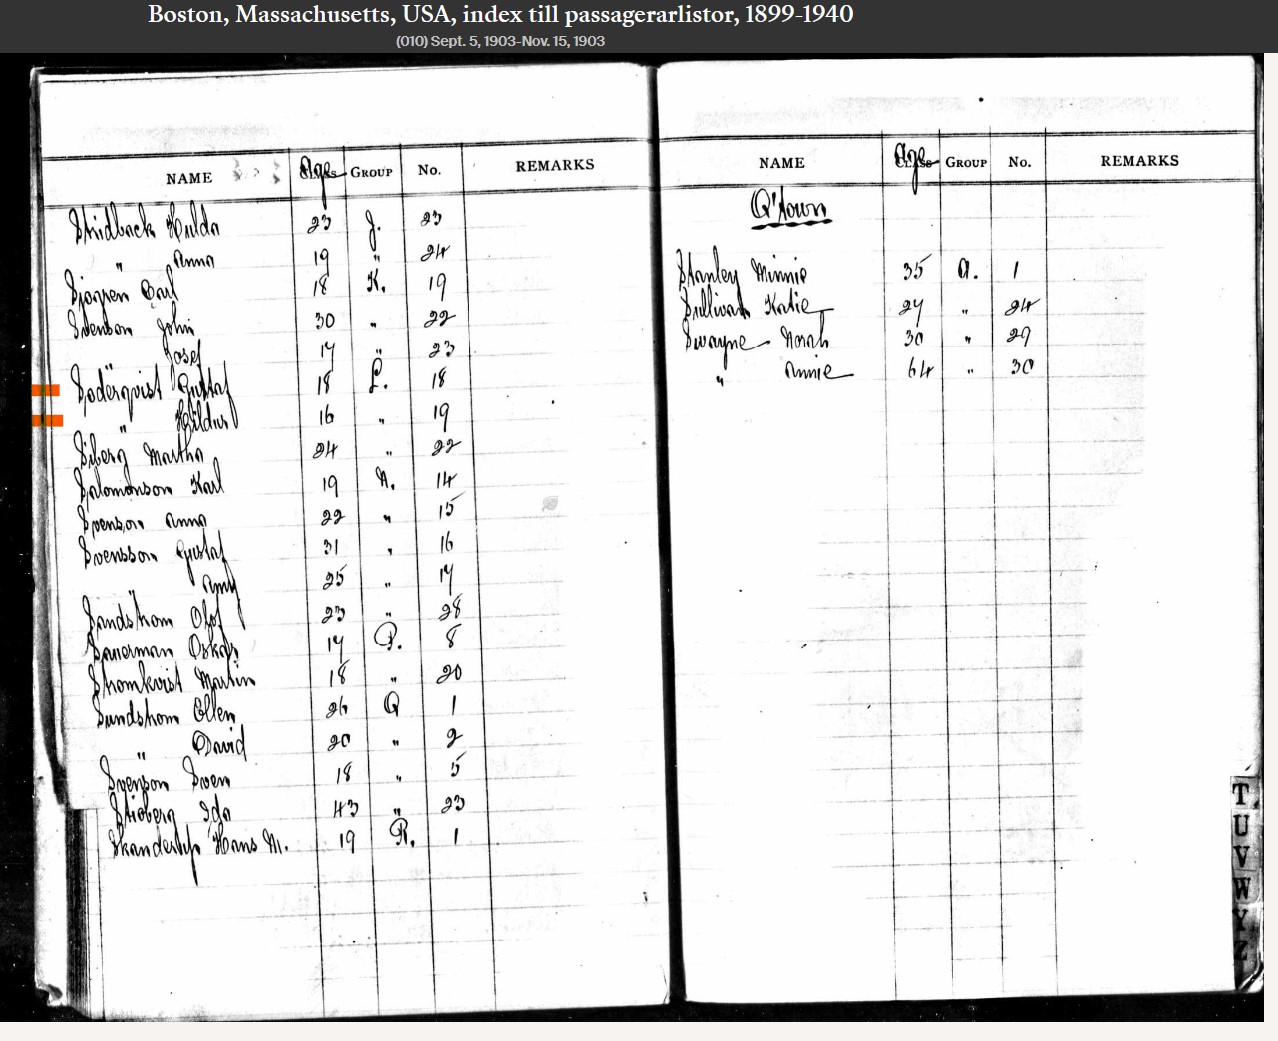 Boston, Massachusetts, USA, index till passagerarlistor, 1899-1940
(010) Sept. 5, 1903-Nov. 15, 1903
NAME Age GROUP No. REMARKS
Stridback Hulda 23 J. 23
" Anna 19 " 24
Sjogren Carl 18 K. 19
Svenson John 30 " 22
Josef 17 " 23
Soderqvist Gustaf 18 L. 18
" Hildur 16 " 19
Siberg Martha 24 " 22
Salomonson Karl 19 N. 14
Svenson Anna 22 " 15
Svensson Gustaf 31 " 16
" Amy 25 " 17
Sandstrom Olof 23 " 28
Sauerman Oskar 17 P. 8
Stromkvist Martin 18 " 20
Sundstrom Ellen 26 Q 1
" David 20 " 2
Svenson Sven 18 " 5
Strioberg Ida 43 " 23
Hans M. 19 R. 1
NAME Age GROUP No. REMARKS
Q'town
Stanley Minnie 35 A. 1
Sullivan Katie 27 " 24
Swayne Norah 30 " 29
" Annie 64 " 30
T
U
V
W
Y
Z